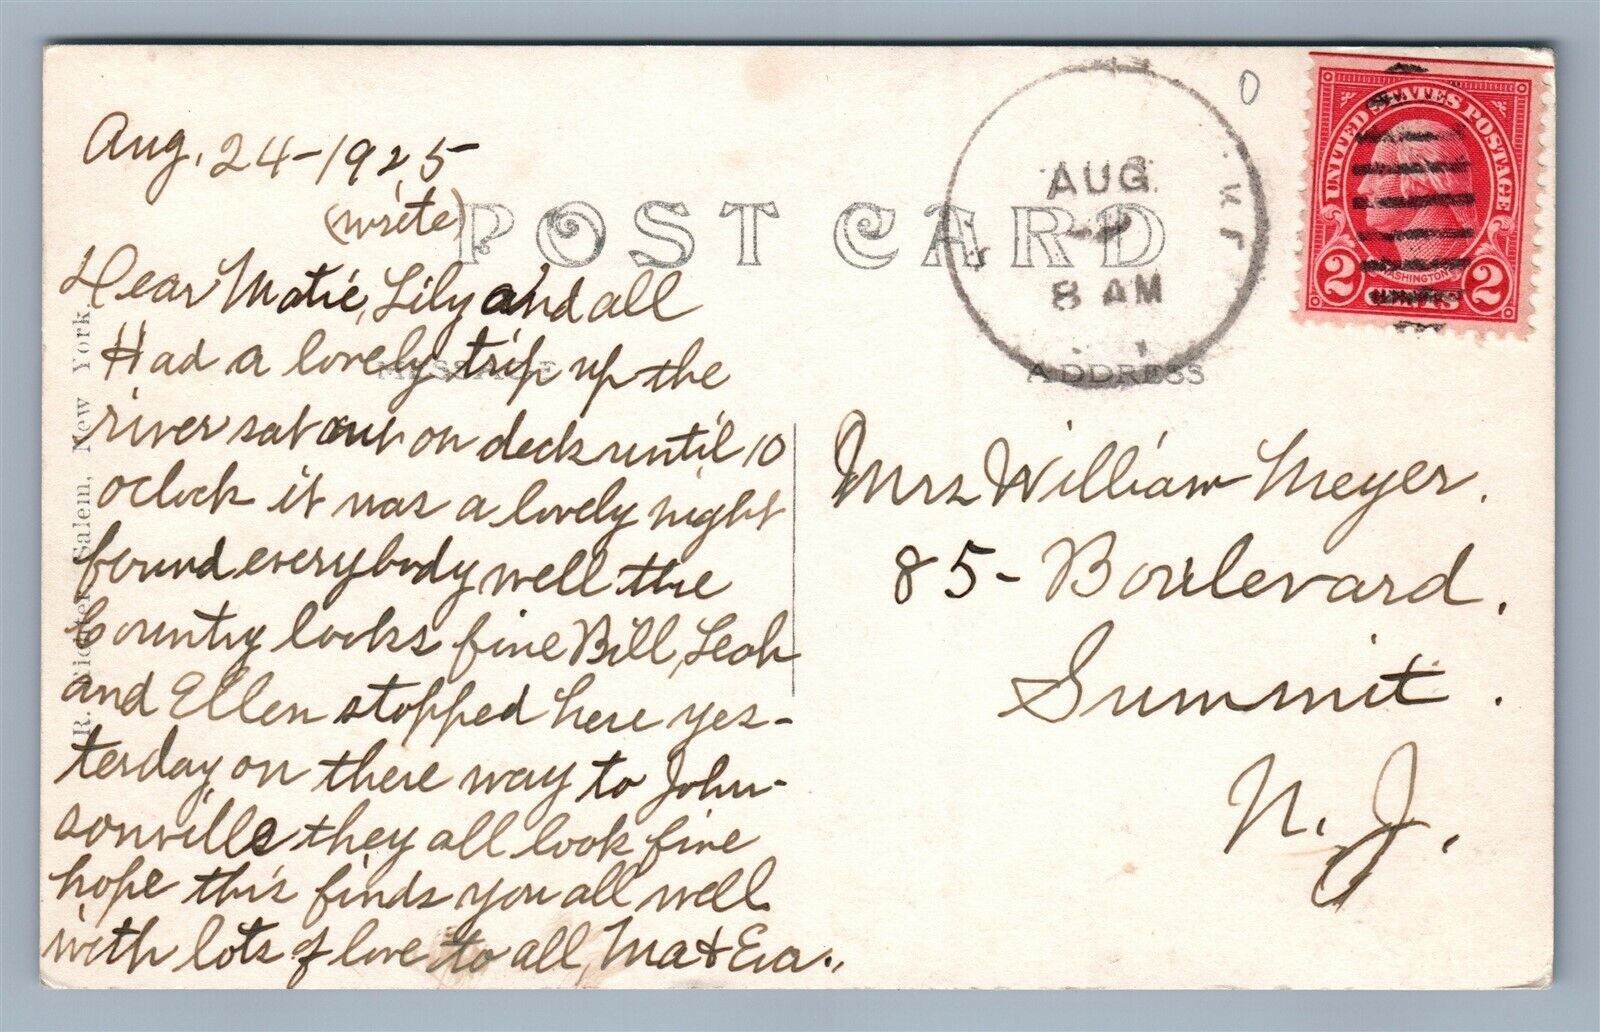 Aug. 24-1925
(write)
POST CARD
Dear Matie, Lily and all
Had a lovely trip up the
river sat out on deck until 10
oclock it was a lovely night
found everybody well the
Country looks fine Bill, Leah
and Ellen stopped here yes-
terday on there way to John-
sonville they all look fine
hope this finds you all well
with lots of love to all, Ma & Eva.,
MESSAGE
R. Richter, Salem, New York.
AUG
8 AM
N.Y.
0
UNITED STATES POSTAGE
WASHINGTON
2 CENTS 2
ADDRESS
Mrs William Meyer.
85- Boulevard.
Summit.
N. J.